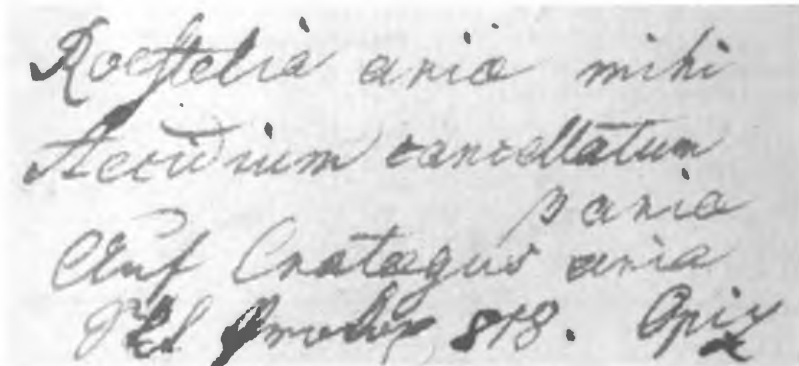 Roestelia aria mihi
Aecidium cancellatum
β aria
Auf Crataegus aria
818. Opiz